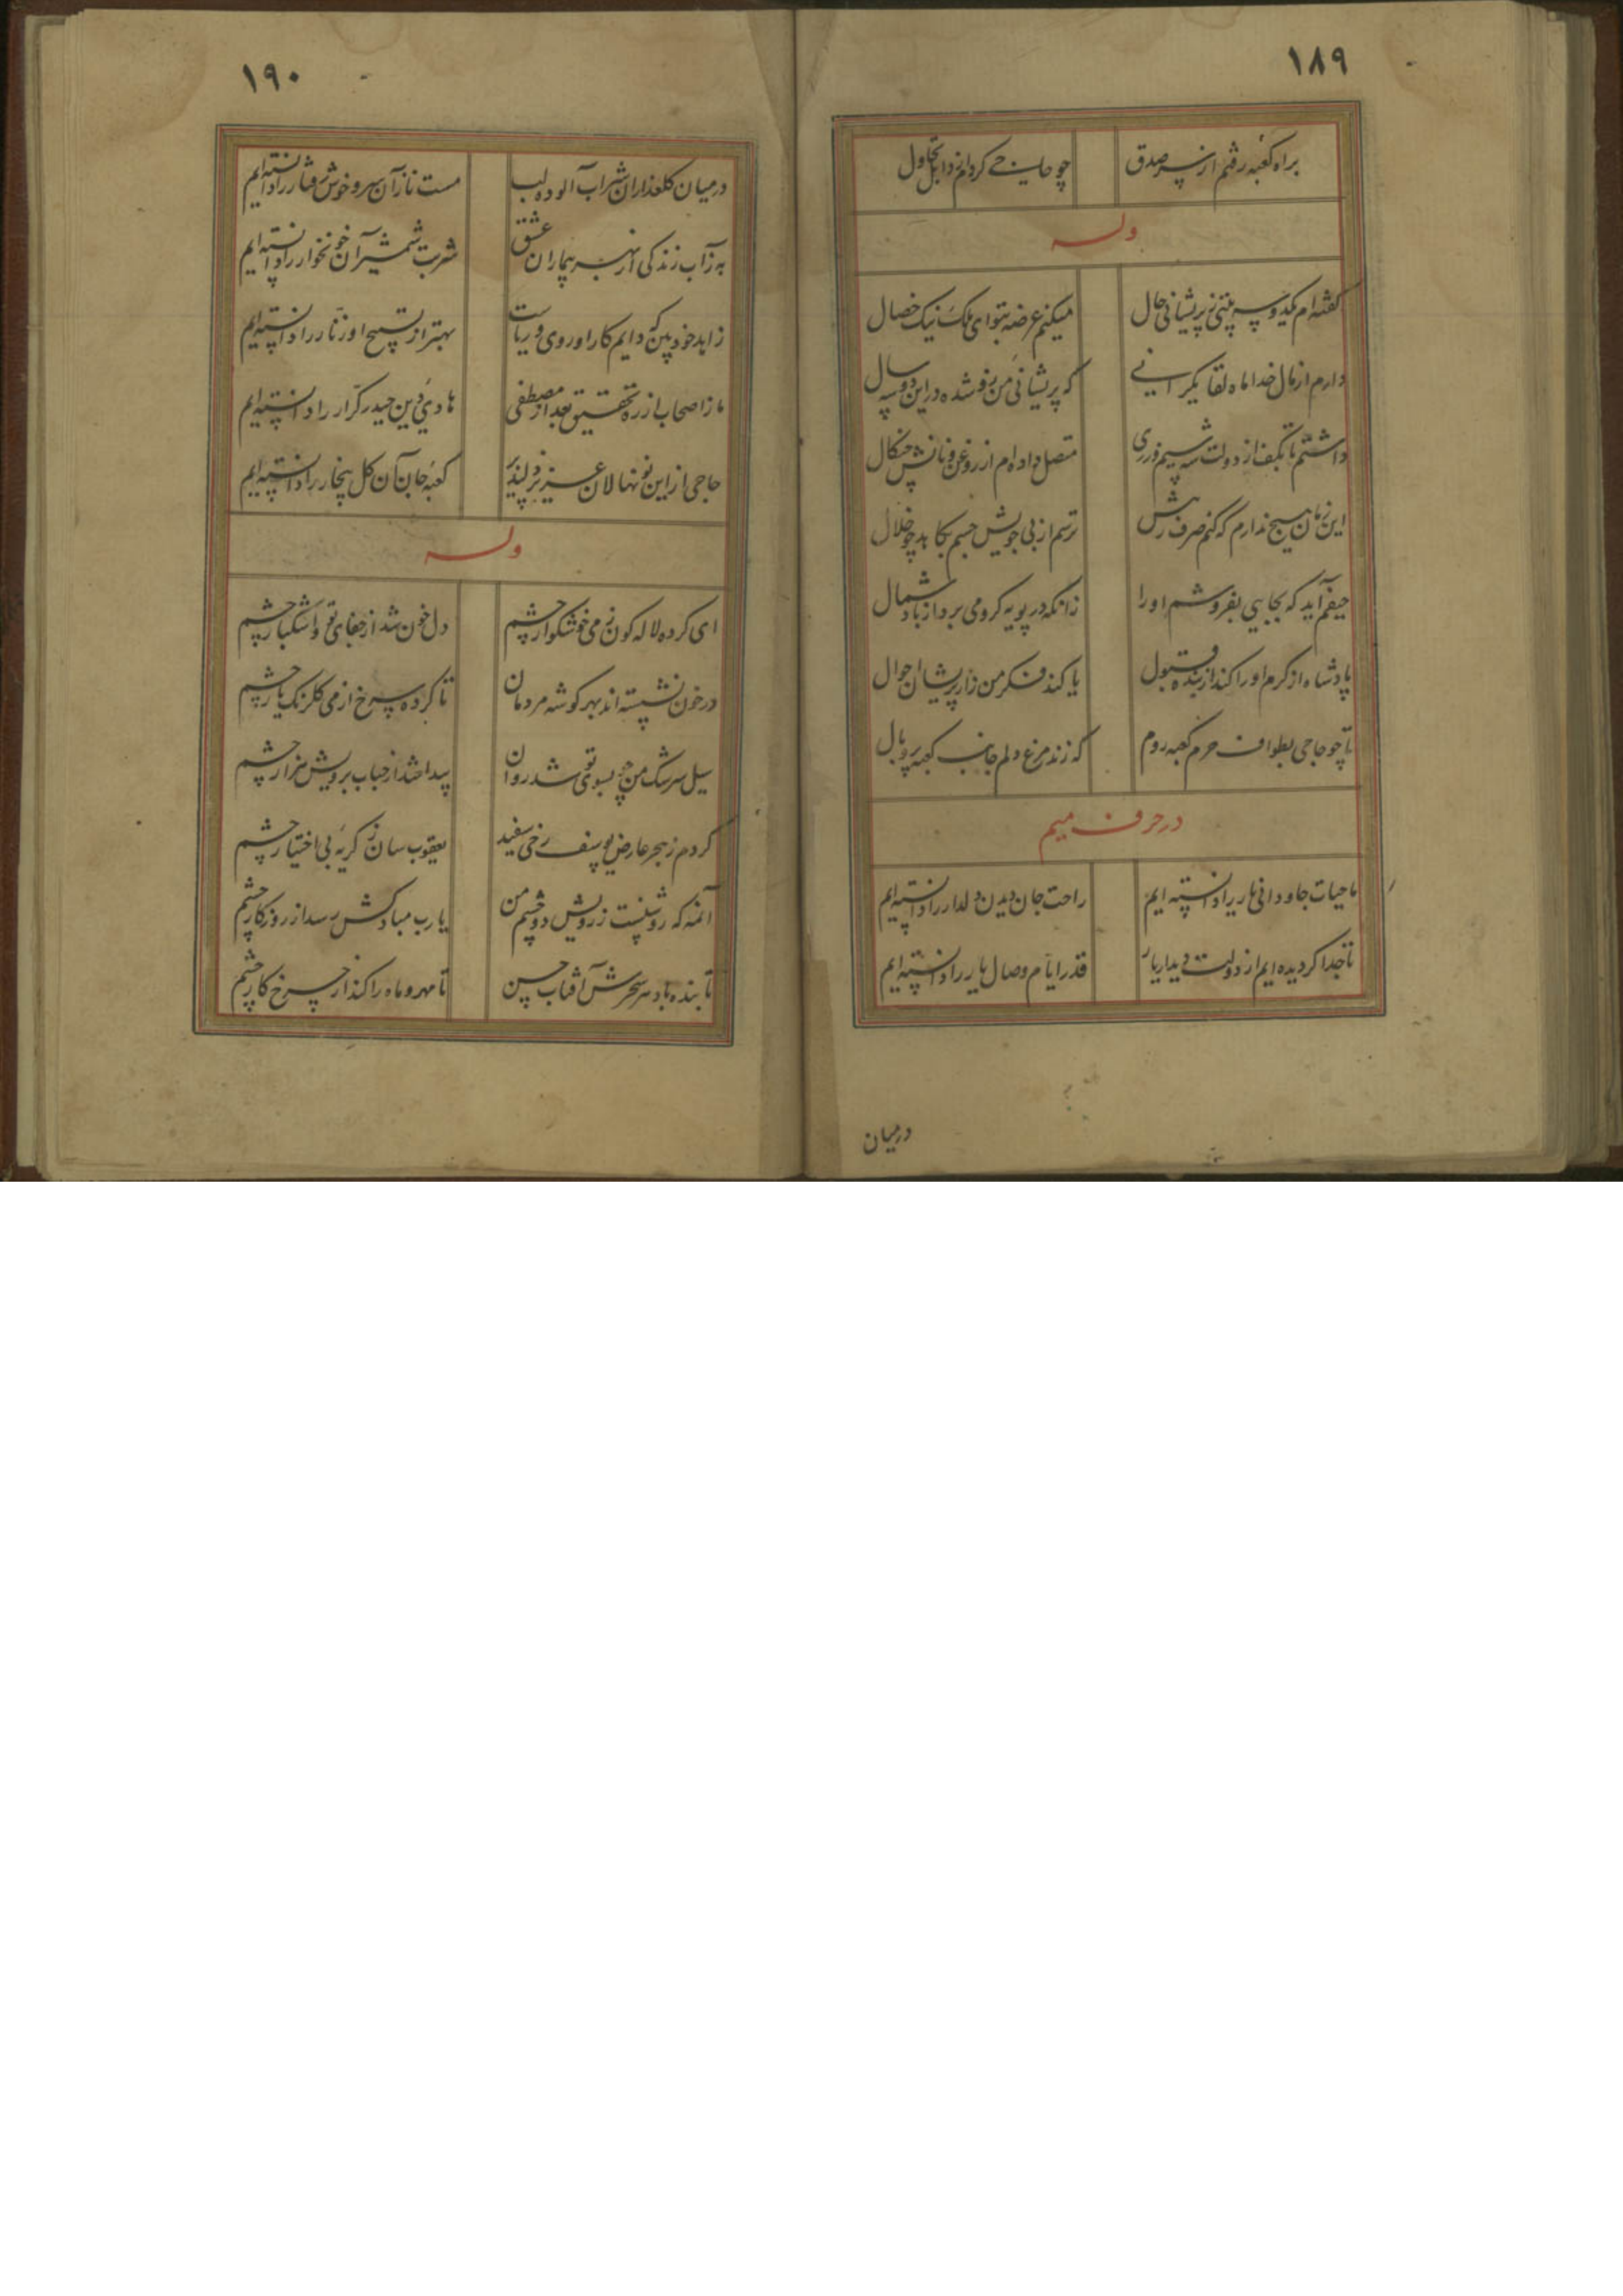 ۱۸۹
براه کعبه رفتم از سر صدق
چو حاجی کردم از دل
وله
گفته ام یکدو سه بیتی ز پریشانی حال
میکنم عرضه بتو ای ملک نیک خصال
دارم از مال خدا ماه لقا یکراسی
که پریشانی من زو شده در این دو سه سال
داشتم تا بکف از دولت شه سیم و زری
متصل داده ام از روغن و نانش چنکال
این زمان هیچ ندارم که کنم صرف رهش
ترسم از بی جویش جسم بکاهد چو خلال
حیفم آید که بجایی بفروشم او را
زانکه در پویه کرو می برد از باد شمال
پادشاه از کرم او را کند از بنده قبول
یا کند فکر من زار پریشان احوال
تا چو حاجی بطواف حرم کعبه روم
که زند مرغ دلم جانب کعبه پر و بال
در حرف میم
ما حیات جاودانی یار را دانسته ایم
راحت جان دیدن دلدار را دانسته ایم
تا جدا کردیده ایم از دولت دیدار یار
قدر ایام وصال یار را دانسته ایم
درمیان
۱۹۰
درمیان کلعذاران شراب آلوده لب
مست ناز آن سرو خوش رفتار را دانسته ایم
به ز آب زندکی از بهر بیماران عشق
شربت شمشیر آن خونخوار را دانسته ایم
زاهد خودبین که دایم کار او روی و ریاست
بهتر از تسبیح او زنار را دانسته ایم
ما ز اصحاب از ره تحقیق بعد از مصطفی
هادی دین حیدر کرار را دانسته ایم
حاجی از این نونهالان عزیز دلپذیر
کعبه جان آن کل بیخار را دانسته ایم
وله
ای کرده لاله کون ز می خوشکوار چشم
دل خون شد از جفای تو و اشکبار چشم
در خون نشسته اند بهر کوشه مردمان
تا کرده سرخ از می کلرنک یار چشم
سیل سرشک من چو بسوی تو شد روان
پیدا شد از حباب برویش هزار چشم
کردم ز هجر عارض یوسف رخی سفید
یعقوب سان ز کریه بی اختیار چشم
آنمه که روشنست ز رویش دو چشم من
یا رب مبادکش رسد از روزکار چشم
تابنده باد سر سحرش آفتاب حسن
تا مهر و ماه را کند از چرخ کار چشم